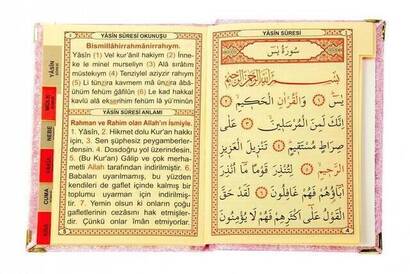 YÂSÎN SÛRESİ OKUNUŞU
Bismillâhirrahmânirrahıym.
Yâsîn (1) Vel kur'ânil hakîym (2) İnne-
ke le minel murseliyn (3) Alâ sırâtım
müstekıym (4) Tenziylel aziyzir rahıym
(5) Li tünzira kavmem mâ ünzira âbâ-
ühüm fehüm ğâfilûn (6) Le kad hakkal
kavlü alâ ekserihim fehüm lâ yü'minûn
YÂSÎN SÛRESİ ANLAMI
Rahman ve Rahim olan Allah'ın ismiyle.
1. Yâsîn, 2. Hikmet dolu Kur'an hakkı
için, 3. Sen şüphesiz peygamberler-
densin. 4. Dosdoğru yol üzerindesin.
5. (Bu Kur'an) Gâlip ve çok merha-
metli Allah tarafından indirilmiştir. 6.
Babaları uyarılmamış, bu yüzden
kendileri de gaflet içinde kalmış bir
toplumu uyarman için indirilmiş-
tir. 7. Yemin olsun ki onların çoğu
gafletlerinin cezasını hak etmişler-
dir. Çünkü onlar iman etmezler.
YÂSÎN
MÜLK
NEBE
CUMA
YÂSÎN SÛRESİ
سُورَةُ يٰسٓ
بِسْمِ اللّٰهِ الرَّحْمٰنِ الرَّحِيمِ
يٰسٓ ۝ وَالْقُرْاٰنِ الْحَكِيمِ ۝
اِنَّكَ لَمِنَ الْمُرْسَلِينَ ۝ عَلٰى
صِرَاطٍ مُسْتَقِيمٍ ۝ تَنْزِيلَ الْعَزِيزِ
الرَّحِيمِ ۝ لِتُنْذِرَ قَوْمًا مَٓا اُنْذِرَ
اٰبَٓاؤُهُمْ فَهُمْ غَافِلُونَ ۝ لَقَدْ حَقَّ
الْقَوْلُ عَلٰٓى اَكْثَرِهِمْ فَهُمْ لَا يُؤْمِنُونَ
4